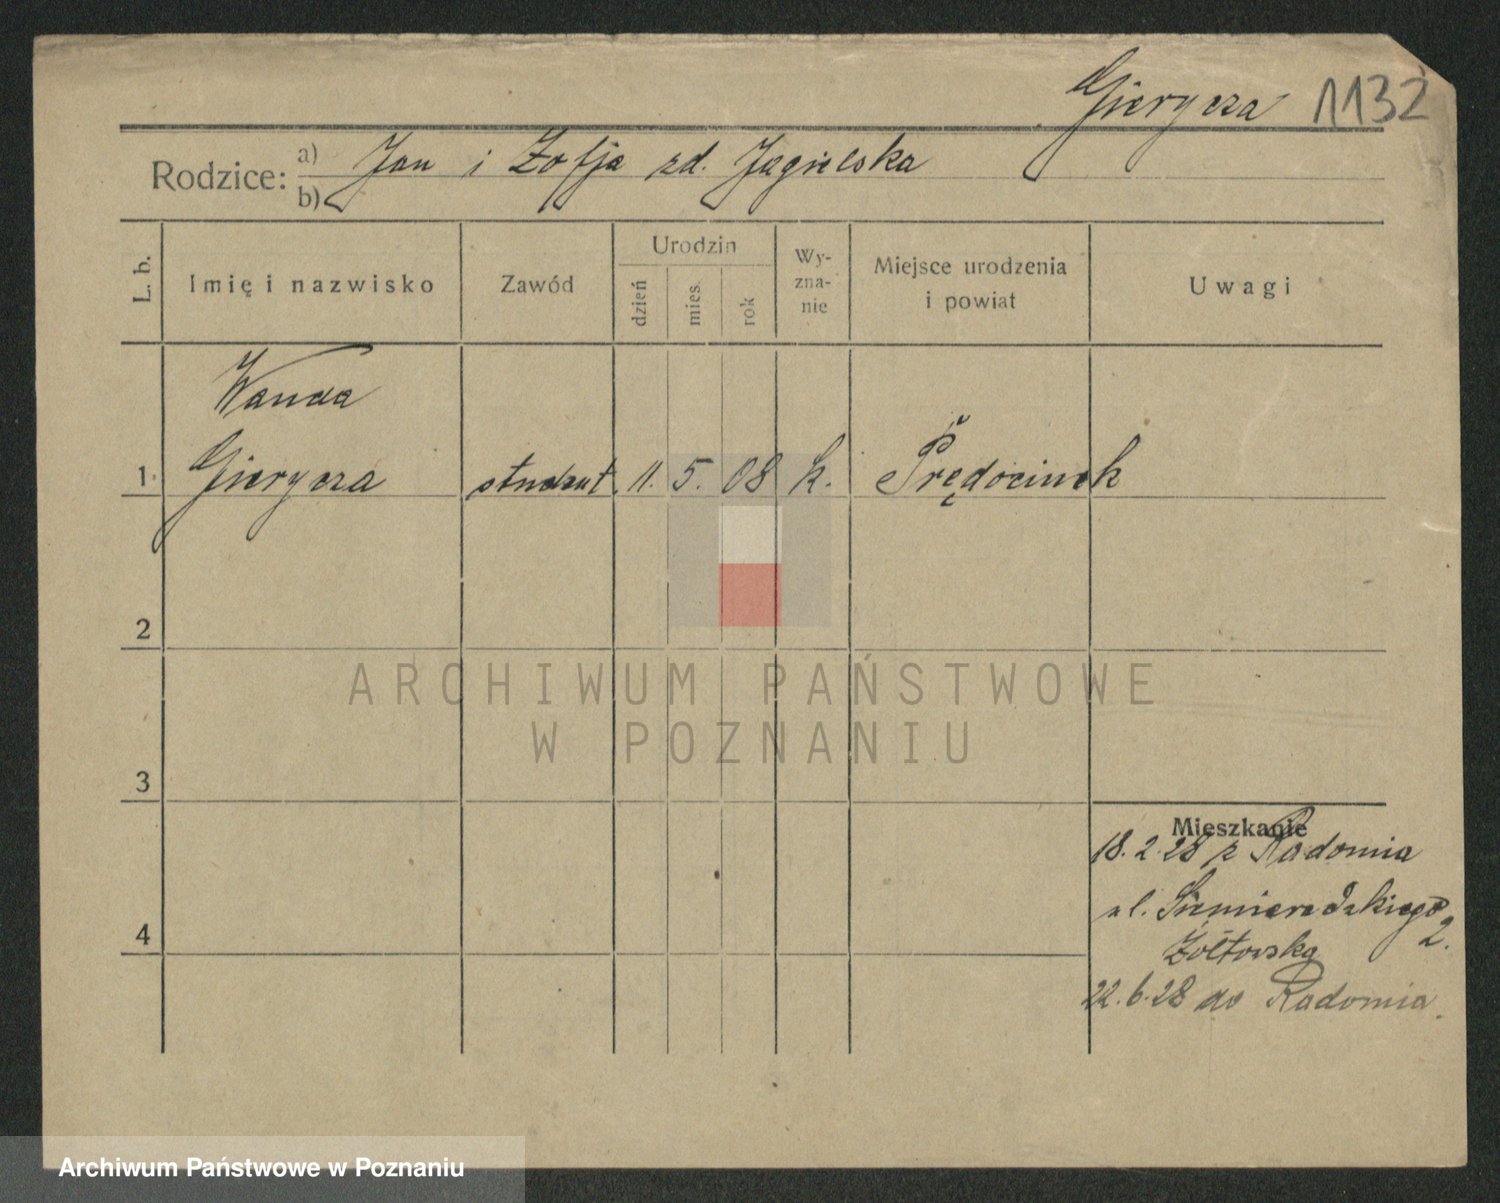 Gierycza 1132
Rodzice: a) Jan i Zofja zd. Jagielska
b)
L. b.
Imię i nazwisko
Zawód
Urodzin
dzień
mies.
rok
Wy-
zna-
nie
Miejsce urodzenia
i powiat
Uwagi
Wanda
1 Gierycza student. 11. 5. 08 k. Prędocinek
2
3
4
Mieszkanie
18.2.28 z Radomia
ul. Siemieradzkiego 2.
Żółtowska
22.6.28 do Radomia.
ARCHIWUM PAŃSTWOWE
W POZNANIU
Archiwum Państwowe w Poznaniu